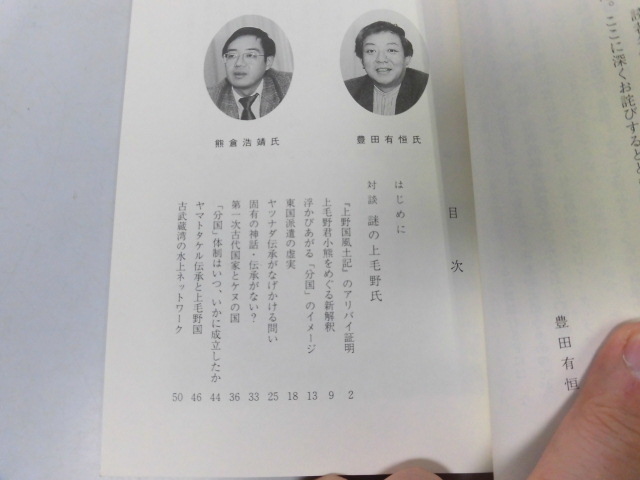 ここに深くお詫びするとと
豊田有恒
目次
豊田有恒氏
熊倉浩靖氏
はじめに
対談 謎の上毛野氏
『上野国風土記』のアリバイ証明 2
上毛野君小熊をめぐる新解釈 9
浮かびあがる「分国」のイメージ 13
東国派遣の虚実 18
ヤツナダ伝承がなげかける問い 25
固有の神話・伝承がない? 33
第一次古代国家とケヌの国 36
「分国」体制はいつ、いかに成立したか 44
ヤマトタケル伝承と上毛野国 46
古武蔵湾の水上ネットワーク 50